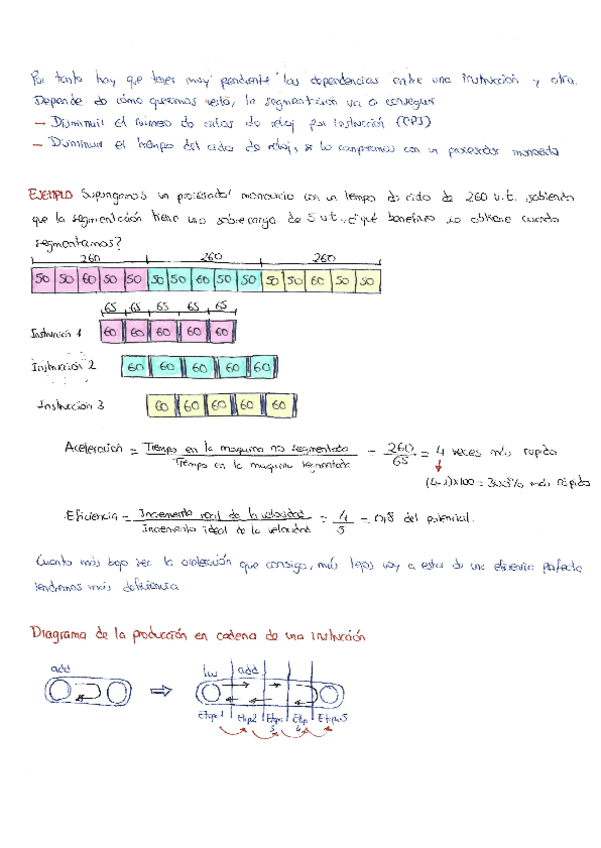 Por tanto hay que tener muy pendiente las dependencias entre una instrucción y otra.
Depende de cómo queramos verlo, la segmentación va a conseguir
— Disminuir el número de ciclos de reloj por instrucción (CPI)
— Disminuir el tiempo del ciclo de reloj, si lo compramos con un procesador monociclo
EJEMPLO Supongamos un procesador monociclo con un tempo de ciclo de 260 u.t. sabiendo
que la segmentación tiene una sobrecarga de 5 u.t., ¿qué beneficio se obtiene cuando
segmentamos?
260 260 260
50 50 60 50 50 50 50 60 50 50 50 50 60 50 50
65 65 65 65 65
Instrucción 1 60 60 60 60 60
Instrucción 2 60 60 60 60 60
Instrucción 3 60 60 60 60 60
Aceleración = Tiempo en la maquina no segmentada / Tiempo en la maquina segmentada = 260 / 65 = 4 veces más rápido
(4-1)x100 = 300% más rápido
Eficiencia = Incremento real de la velocidad / Incremento ideal de la velocidad = 4 / 5 = 0,8 del potencial.
Cuanto más bajo sea la aceleración que consigo, más lejos voy a estar de una eficiencia perfecta
tendremos más deficiencia
Diagrama de la producción en cadena de una instrucción
add lw add
Etapa 1 Etapa 2 Etapa 3 Etapa 4 Etapa 5